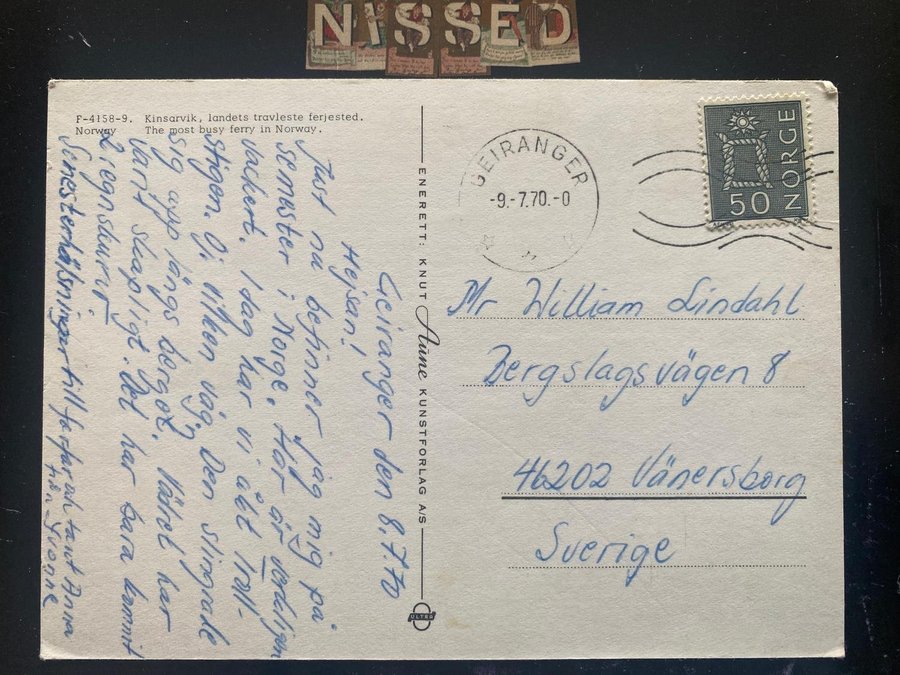 NISSED
F-4158-9. Kinsarvik, landets travleste ferjested.
Norway The most busy ferry in Norway.
Geiranger den 8.7.70
Hejsan!
Just nu befinner jag mig på
semester i Norge. Här är verkligen
vackert. I dag har vi åkt troll-
stigen. Oj vilken väg. Den slingrade
sig upp längs berget. Vädret har
varit skapligt. Det har bara kommit
2 regnskurar
Semesterhälsningar till farfar och tant Anna
från Yvonne
ENERETT: KNUT Aune KUNSTFORLAG A/S
ULTRA
GEIRANGER
-9.-7.70.-0
50 NORGE
Mr William Lindahl
Bergslagsvägen 8
46202 Vänersborg
Sverige